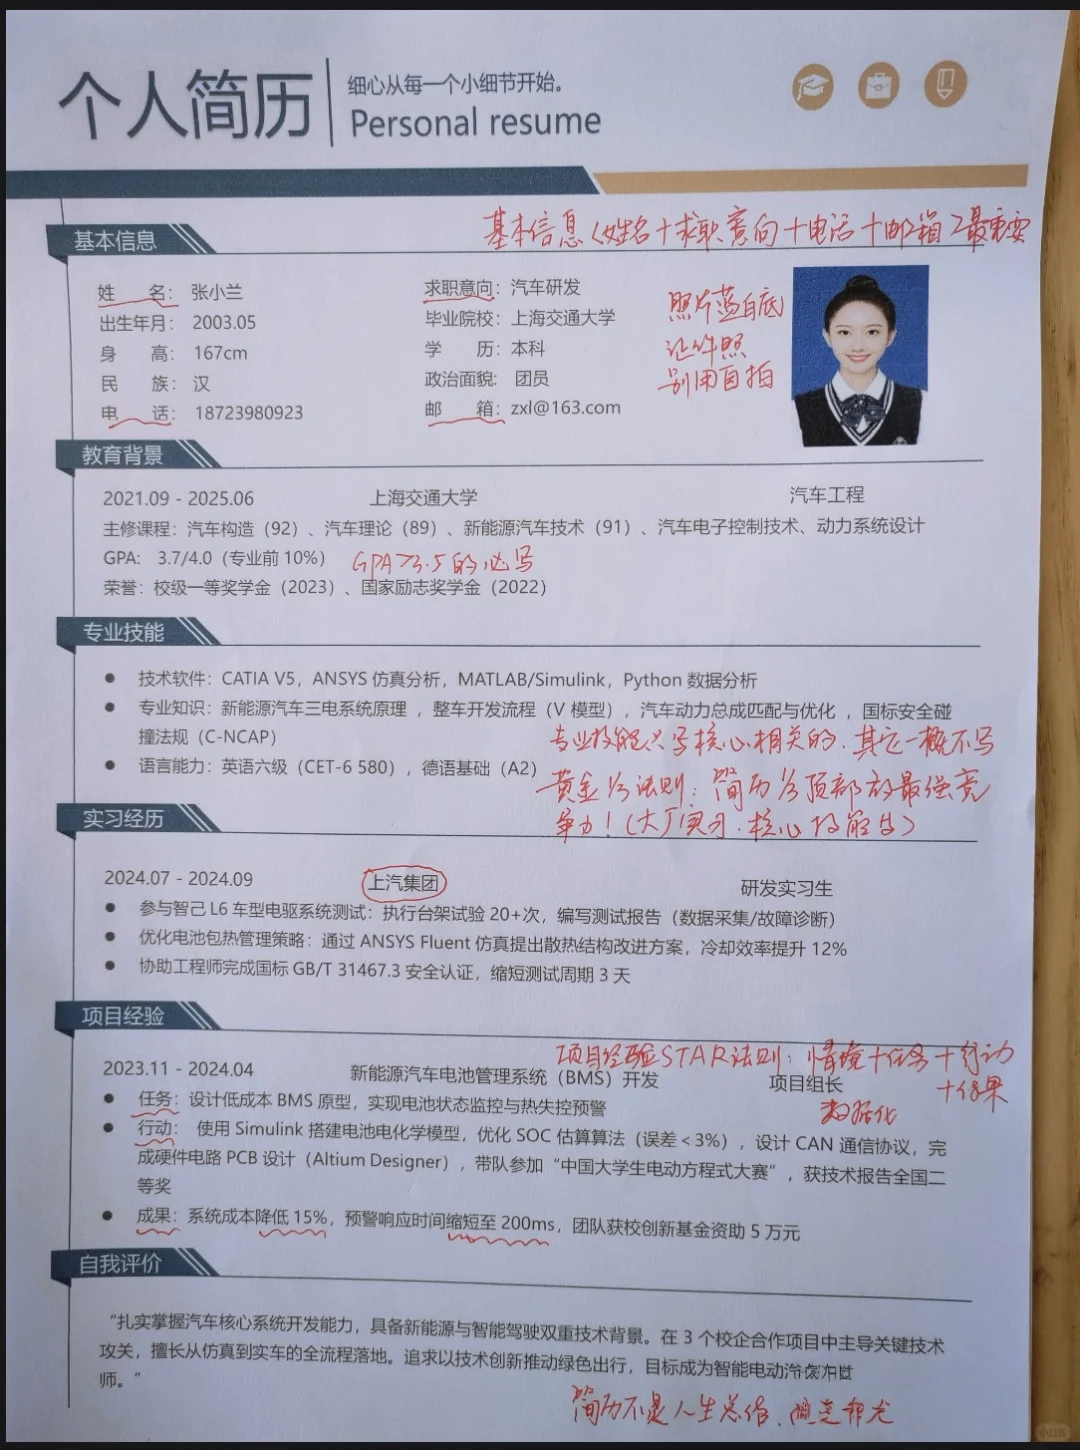 个人简历
细心从每一个小细节开始。
Personal resume
基本信息
基本信息（姓名+求职意向+电话+邮箱）最重要
姓 名： 张小兰
求职意向： 汽车研发
出生年月： 2003.05
毕业院校： 上海交通大学
身 高： 167cm
学 历： 本科
民 族： 汉
政治面貌： 团员
电 话： 18723980923
邮 箱： zxl@163.com
照片蓝白底
证件照
别用自拍
教育背景
2021.09 - 2025.06 上海交通大学 汽车工程
主修课程：汽车构造（92）、汽车理论（89）、新能源汽车技术（91）、汽车电子控制技术、动力系统设计
GPA: 3.7/4.0（专业前 10%）
GPA>3.5的必写
荣誉：校级一等奖学金（2023）、国家励志奖学金（2022）
专业技能
技术软件：CATIA V5，ANSYS 仿真分析，MATLAB/Simulink，Python 数据分析
专业知识：新能源汽车三电系统原理 ，整车开发流程（V 模型），汽车动力总成匹配与优化 ，国标安全碰
撞法规（C-NCAP）
语言能力：英语六级（CET-6 580），德语基础（A2）
专业技能只写核心相关的，其它一概不写
黄金⅓法则：简历⅓顶部放最强竞
争力！（大厂实习、核心技能等）
实习经历
2024.07 - 2024.09 上汽集团 研发实习生
参与智己 L6 车型电驱系统测试：执行台架试验 20+次，编写测试报告（数据采集/故障诊断）
优化电池包热管理策略：通过 ANSYS Fluent 仿真提出散热结构改进方案，冷却效率提升 12%
协助工程师完成国标 GB/T 31467.3 安全认证，缩短测试周期 3 天
项目经验
项目经验STAR法则：情境+任务+行动
+结果
数据化
2023.11 - 2024.04 新能源汽车电池管理系统（BMS）开发 项目组长
任务：设计低成本 BMS 原型，实现电池状态监控与热失控预警
行动： 使用 Simulink 搭建电池电化学模型，优化 SOC 估算算法（误差＜3%），设计 CAN 通信协议，完
成硬件电路 PCB 设计（Altium Designer），带队参加“中国大学生电动方程式大赛”，获技术报告全国二
等奖
成果：系统成本降低 15%，预警响应时间缩短至 200ms，团队获校创新基金资助 5 万元
自我评价
“扎实掌握汽车核心系统开发能力，具备新能源与智能驾驶双重技术背景。在 3 个校企合作项目中主导关键技术
攻关，擅长从仿真到实车的全流程落地。追求以技术创新推动绿色出行，目标成为智能电动
师。”
简历不是人生总结，